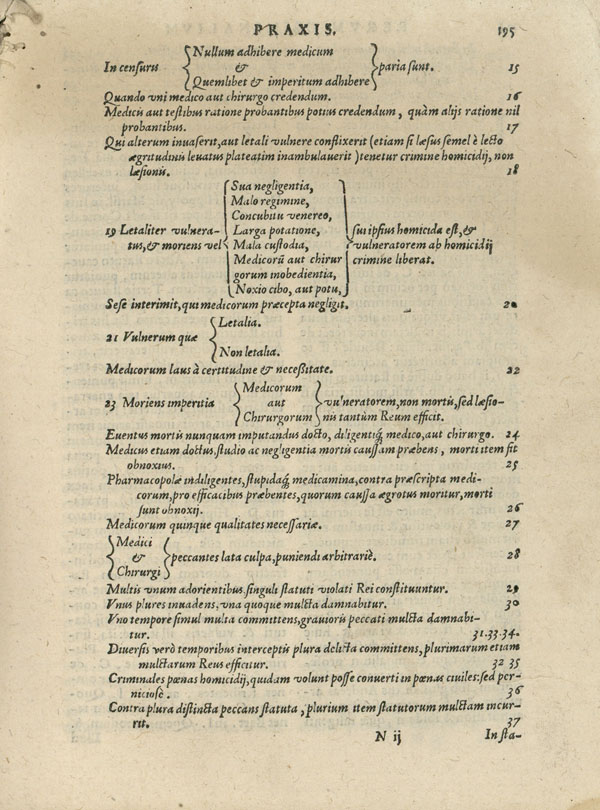 PRAXIS. 195
Nullum adhibere medicum
In censuris & paria sunt. 15
Quemlibet & imperitum adhibere
Quando vni medico aut chirurgo credendum. 16
Medicis aut testibus ratione probantibus potius credendum, quàm alijs ratione nil
probantibus. 17
Qui alterum inuaserit, aut letali vulnere conflixerit (etiam si læsus semel è lecto
ægritudinis leuatus plateatim inambulauerit) tenetur crimine homicidij, non
læsionis. 18
Sua negligentia,
Malo regimine,
Concubitu venereo,
19 Letaliter vulnera- Larga potatione, sui ipsius homicida est, &
tus, & moriens vel Mala custodia, vulneratorem ab homicidij
Medicorū aut chirur crimine liberat.
gorum inobedientia,
Noxio cibo, aut potu,
Sese interimit, qui medicorum præcepta negligit. 20
Letalia.
21 Vulnerum quæ
Non letalia.
Medicorum laus à certitudine & necessitate. 22
Medicorum
23 Moriens imperitia aut vulneratorem, non mortis, sed læsio-
Chirurgorum nis tantùm Reum efficit.
Euentus mortis nunquam imputandus docto, diligentiq́; medico, aut chirurgo. 24
Medicus etiam doctus, studio ac negligentia mortis caussam præbens, morti item fit
obnoxius. 25
Pharmacopolæ indiligentes, stupidaq́; medicamina, contra præscripta medi-
corum, pro efficacibus præbentes, quorum caussa ægrotus moritur, morti
sunt obnoxij. 26
Medicorum quinque qualitates necessariæ. 27
Medici
& peccantes lata culpa, puniendi arbitrariè. 28
Chirurgi
Multis vnum adorientibus, singuli statuti violati Rei constituuntur. 29
Vnus plures inuadens, vna quoque mulcta damnabitur. 30
Vno tempore simul multa committens, grauioris peccati mulcta damnabi-
tur. 31.33.34.
Diuersis verò temporibus interceptis plura delicta committens, plurimarum etiam
mulctarum Reus efficitur. 32 35
Criminales pœnas homicidij, quidam volunt posse conuerti in pœnas ciuiles: sed per-
niciosè. 36
Contra plura distincta peccans statuta, plurium item statutorum mulctam incur-
rit. 37
N ij In sta-